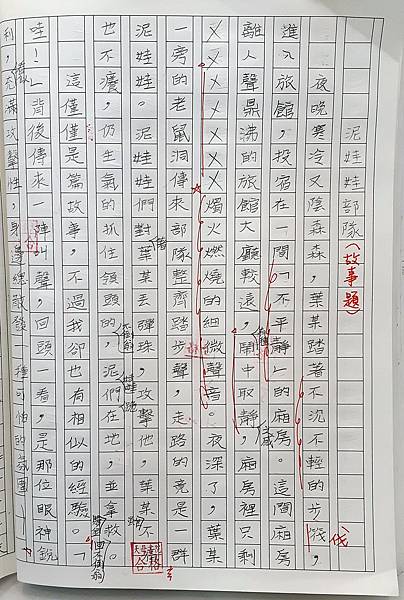 泥娃娃部隊(故事題)
夜晚寒冷又陰森森，葉某踏著不沉不輕的步筏，
進入旅館，投宿在一間「不平靜」的廂房。這間廂房
離人聲鼎沸的旅館大廳較遠，鬧中取靜，廂房裡只剩
燭火燃燒的細微聲音。夜深了，葉某
一旁的老鼠洞傳來部隊整齊踏步聲，走路的竟是一群
泥娃娃。泥娃娃們對葉某丟彈珠，攻擊他，葉某不
也不癢，仍生氣的抓住領頭的，泥們在地，並拿救。
這僅僅是篇故事，不過我卻也有相似的經驗。「
哇！」背後傳來一陣叫聲，回頭一看，是那位眼神銳
利，充滿攻擊性，身邊總散發一種可怕的氛圍
伐